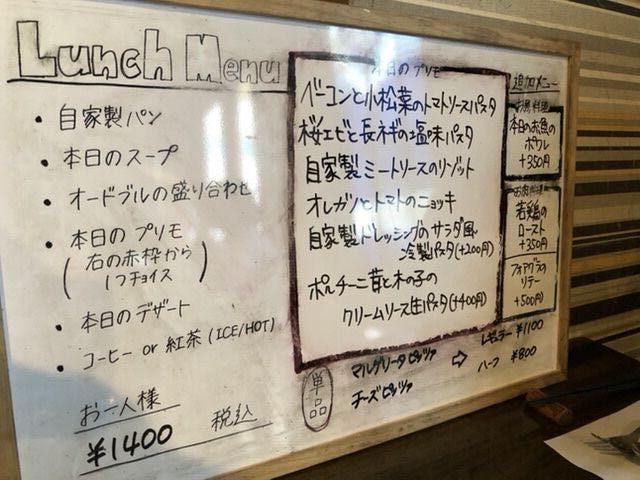 Lunch Menu
・自家製パン
・本日のスープ
・オードブルの盛り合わせ
・本日のプリモ
(右の赤枠から
1つチョイス)
・本日のデザート
・コーヒー or 紅茶(ICE/HOT)
お一人様 税込
¥1400
本日のプリモ
ベーコンと小松菜のトマトソースパスタ
桜エビと長ネギの塩味パスタ
自家製ミートソースのリゾット
オレガノとトマトのニョッキ
自家製ドレッシングのサラダ風
冷製パスタ(+200円)
ポルチーニ茸と木の子の
クリームソース生パスタ(+400円)
追加メニュー
お魚料理
本日のお魚の
ポワレ
+350円
お肉料理
若鶏の
ロースト
+350円
フォアグラの
ソテー
+500円
単品
マルゲリータピッツァ
チーズピッツァ
⇨
レギュラー ¥1100
ハーフ ¥800